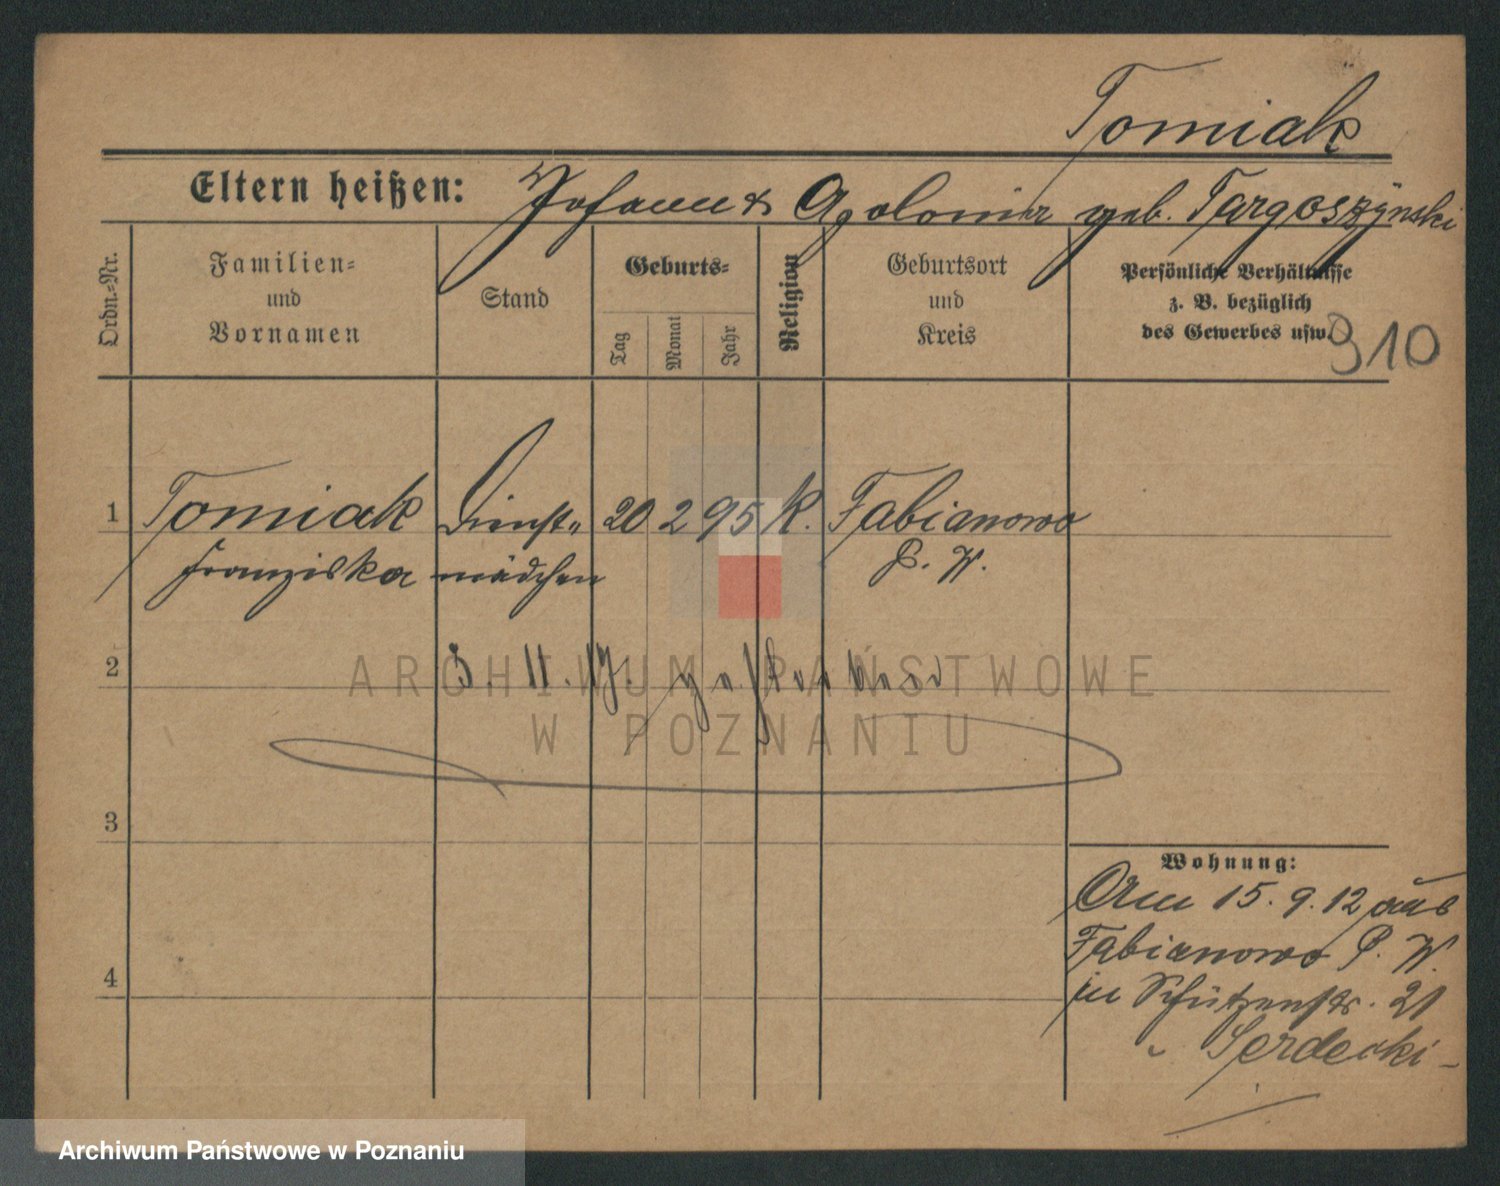 Tomiak
Eltern heißen: Johann & Apolonia geb. Targoszynski
Ordn.-Nr.
Familien-
und
Vornamen
Stand
Geburts-
Tag
Monat
Jahr
Religion
Geburtsort
und
Kreis
Persönliche Verhältnisse
z. B. bezüglich
des Gewerbes usw.
910
1 Tomiak Dienst- 20 2 95 K. Fabianowo
Franziska mädchen P. W.
2 5. 11. 17. gestorben
3
4
Wohnung:
Am 15. 9. 12 aus
Fabianowo P. W.
in Schützenstr. 21
Serdecki
ARCHIWUM PAŃSTWOWE
W POZNANIU
Archiwum Państwowe w Poznaniu